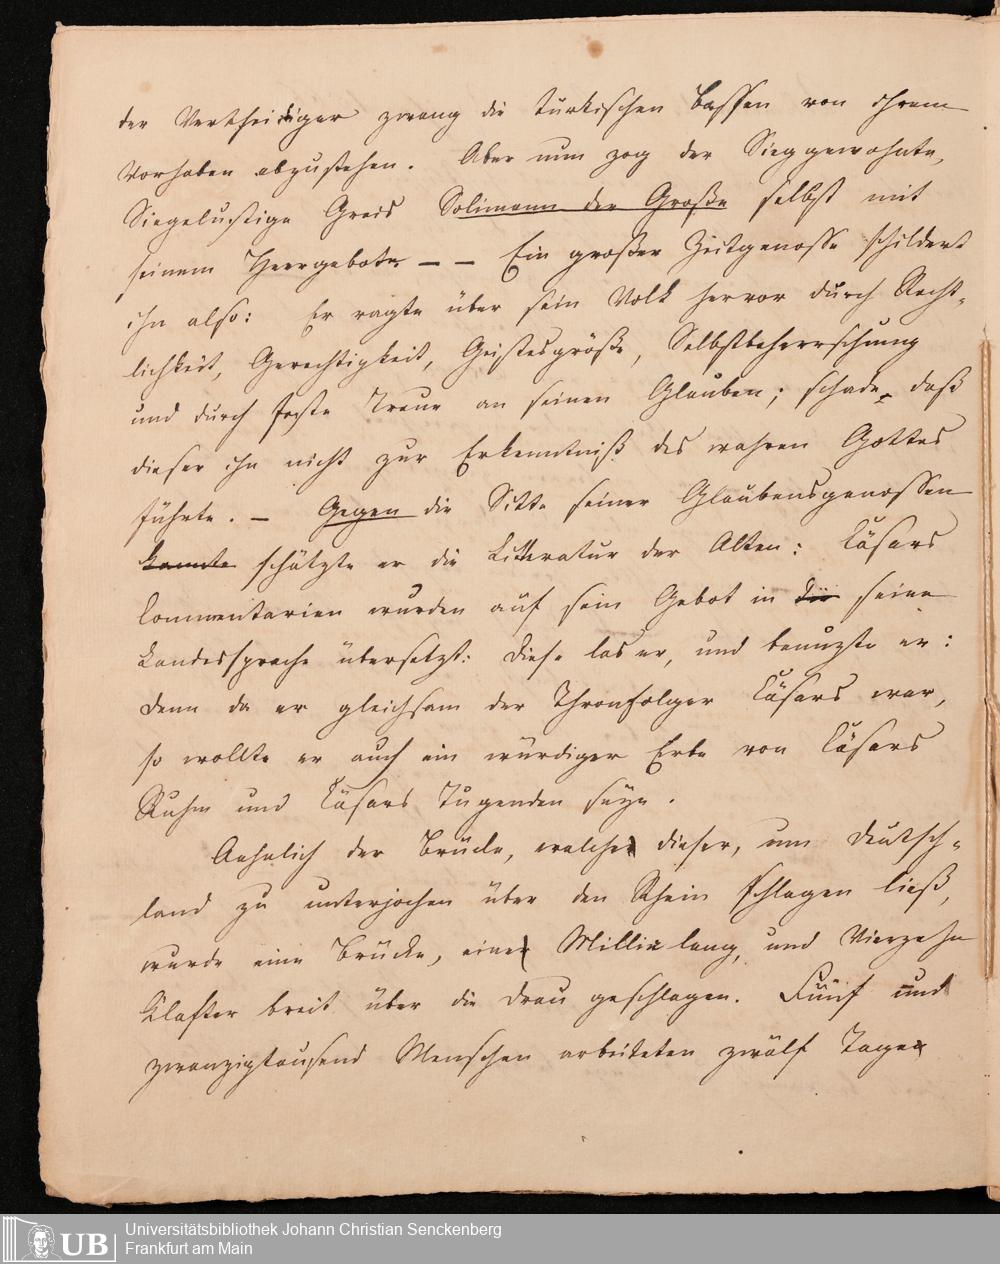 der Vertheidiger zwang die türkischen Bassen von ihrem
Vorhaben abzustehen. Aber nun zog der Sieggewohnte,
Siegelustige Greis Solimann der Große selbst mit
seinem Heergebote – – Ein großer Zeitgenosse schildert
ihn also: Er ragte über sein Volk hervor durch Recht-
lichkeit, Gerechtigkeit, Geistesgröße, Selbstbeherrschung
und durch feste Treue an seinen Glauben; schade, daß
dieser ihn nicht zur Erkenntniß des wahren Gottes
führte. – Gegen die Sitte seiner Glaubensgenossen
kannte schätzte er die Litteratur der Alten: Cäsars
Commentarien wurden auf sein Gebot in die seine
Landessprache übersetzt: diese las er, und benuzte er:
denn da er gleichsam der Thronfolger Cäsars war,
so wollte er auch ein würdiger Erbe von Cäsars
Ruhm und Cäsars Tugenden seyn.
Aehnlich der Brücke, welche dieser, um Deutsch-
land zu unterjochen über den Rhein schlagen ließ,
wurde eine Brücke, eine Millie lang, und Vierzehn
Klafter breit über die Drau geschlagen. Fünf und
zwanzigtausend Menschen arbeiteten zwölf Tage
UB
Universitätsbibliothek Johann Christian Senckenberg
Frankfurt am Main